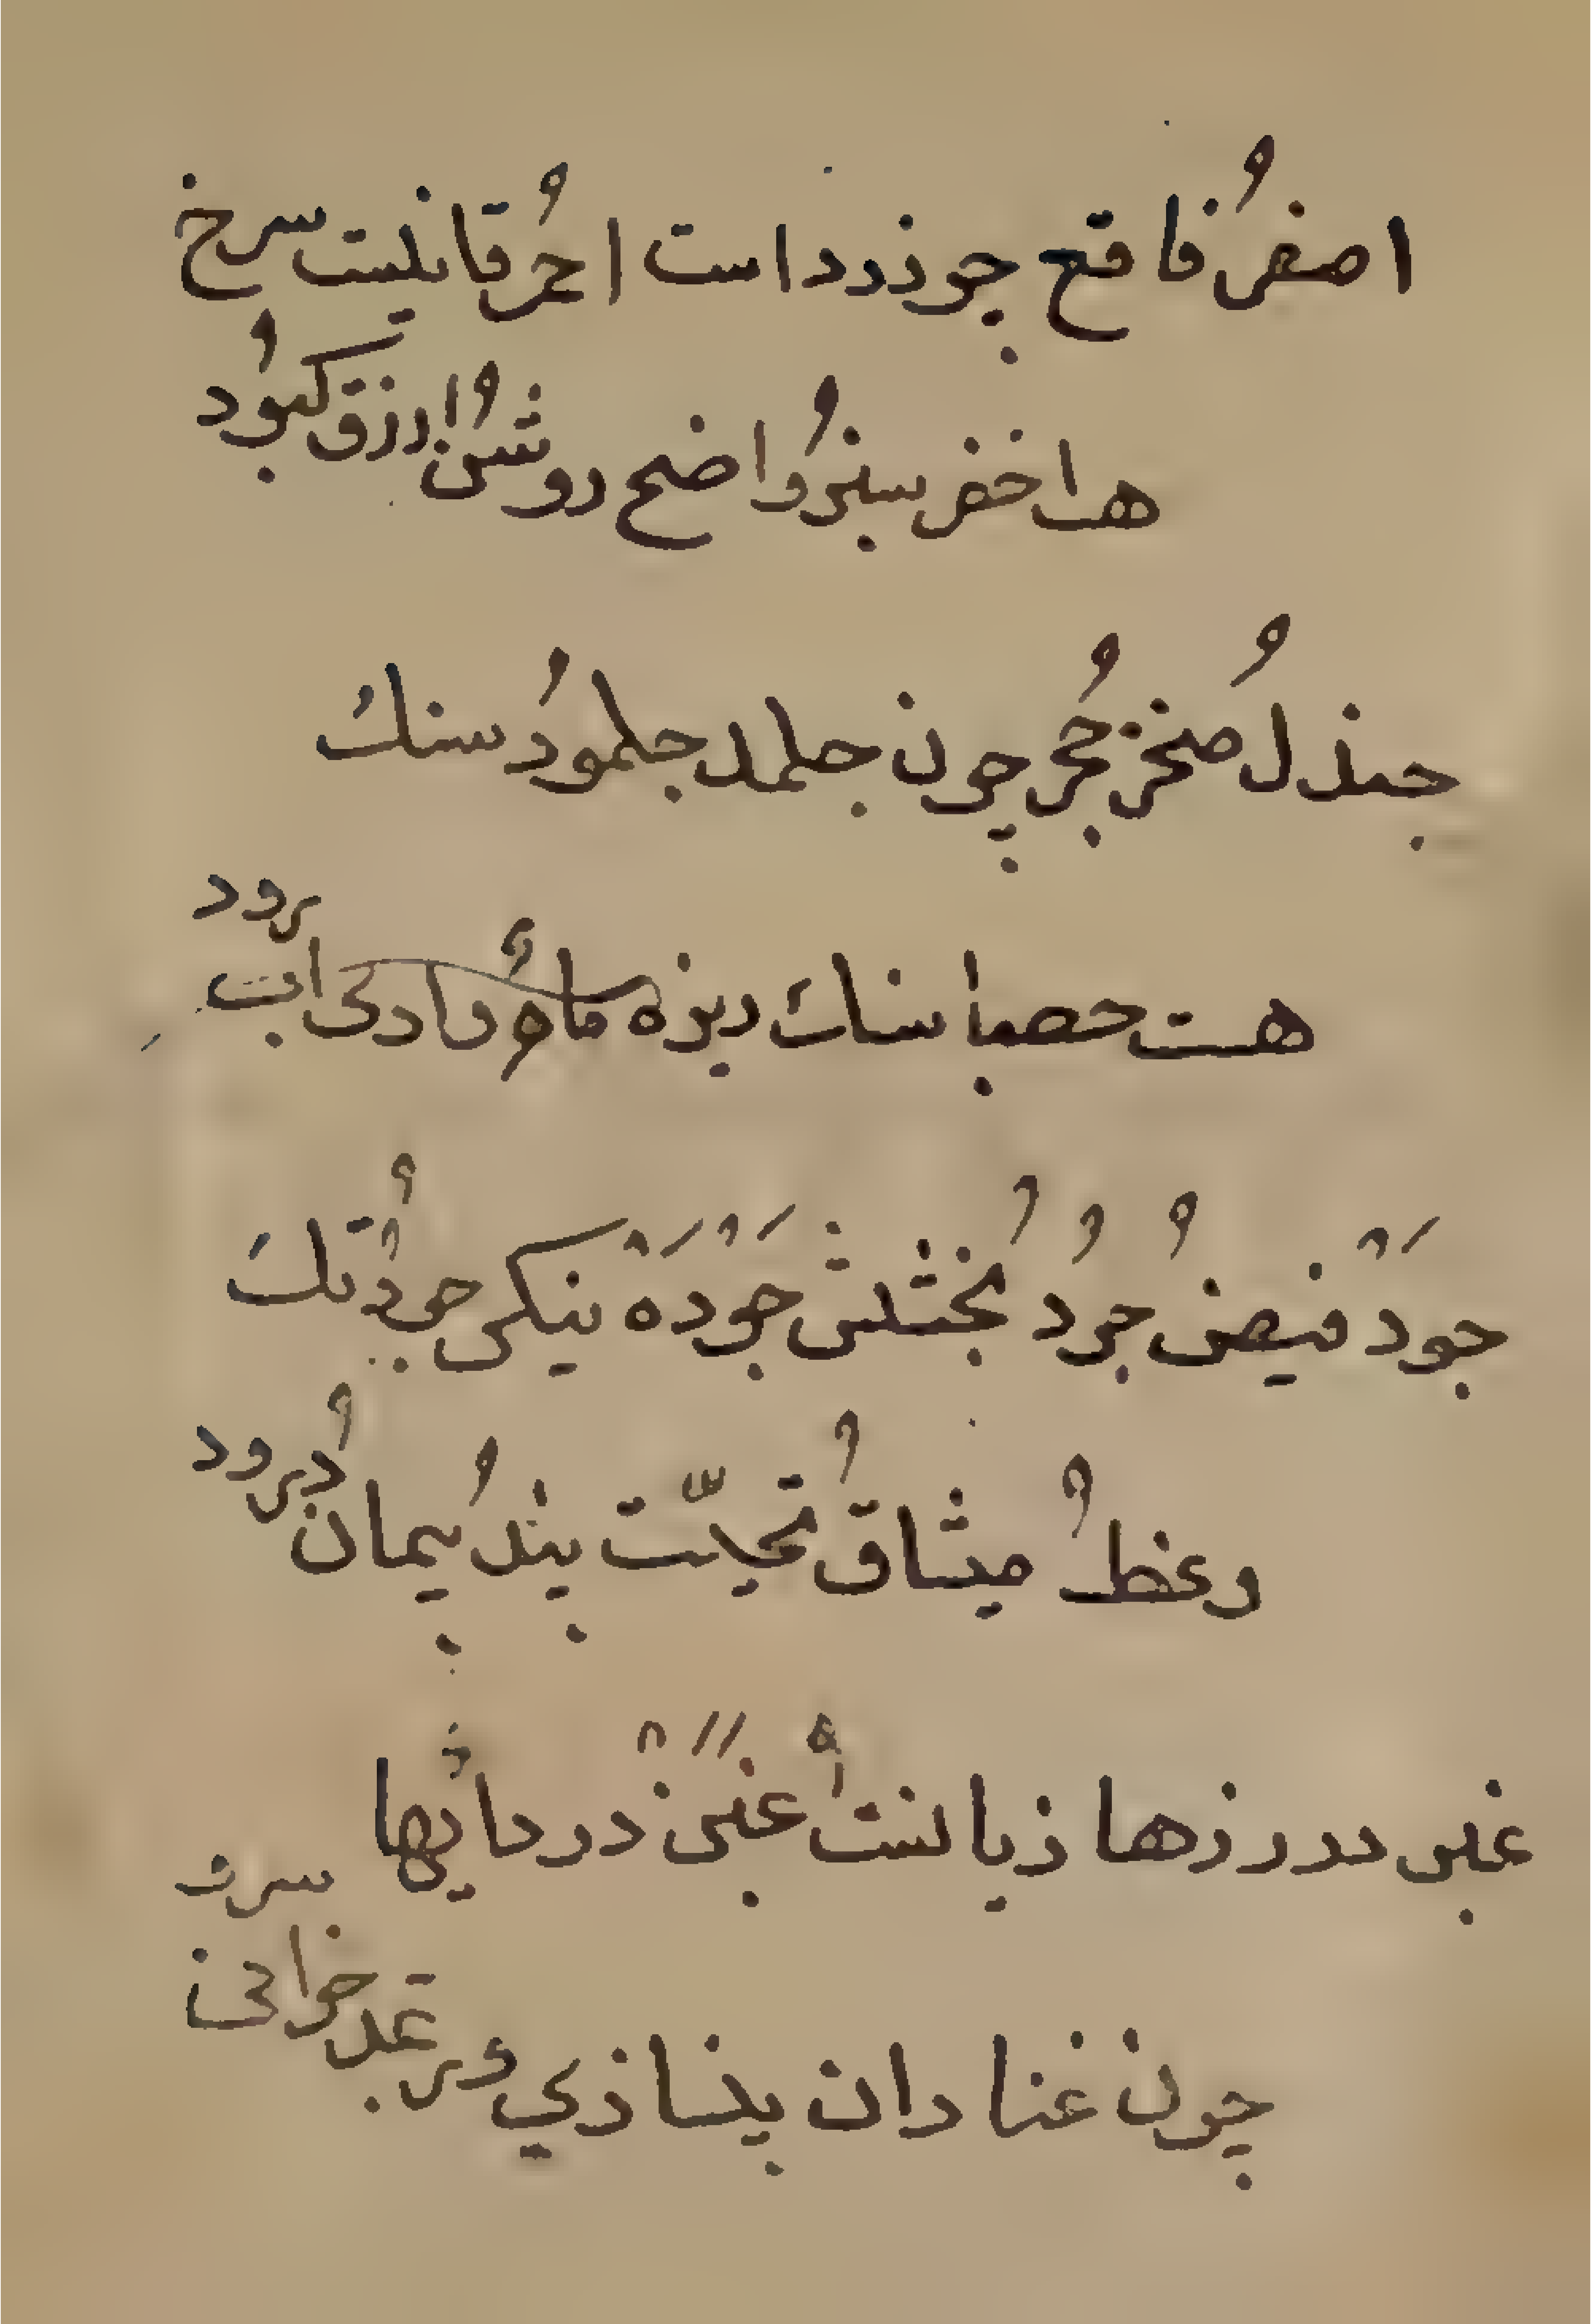 اصفرُ فاقع چو زرد است احمرُ قانیست سرخ
هم اخضر سبزُ واضح روشنُ ازرق کبود
جندلُ صخرة حجرُ چون جلمد جلمودُ سنك
هست حصبا سنك ریزه ماءُ وادی اب رود
جودَ فیضُ جودُ بخشش جَودَة نیکی جودُ تك
وعظُ میثاقُ تحیّت پندُ پیمان درود
غبن در زرها زیانست غبن در رایها
چون غنا دان بینازی